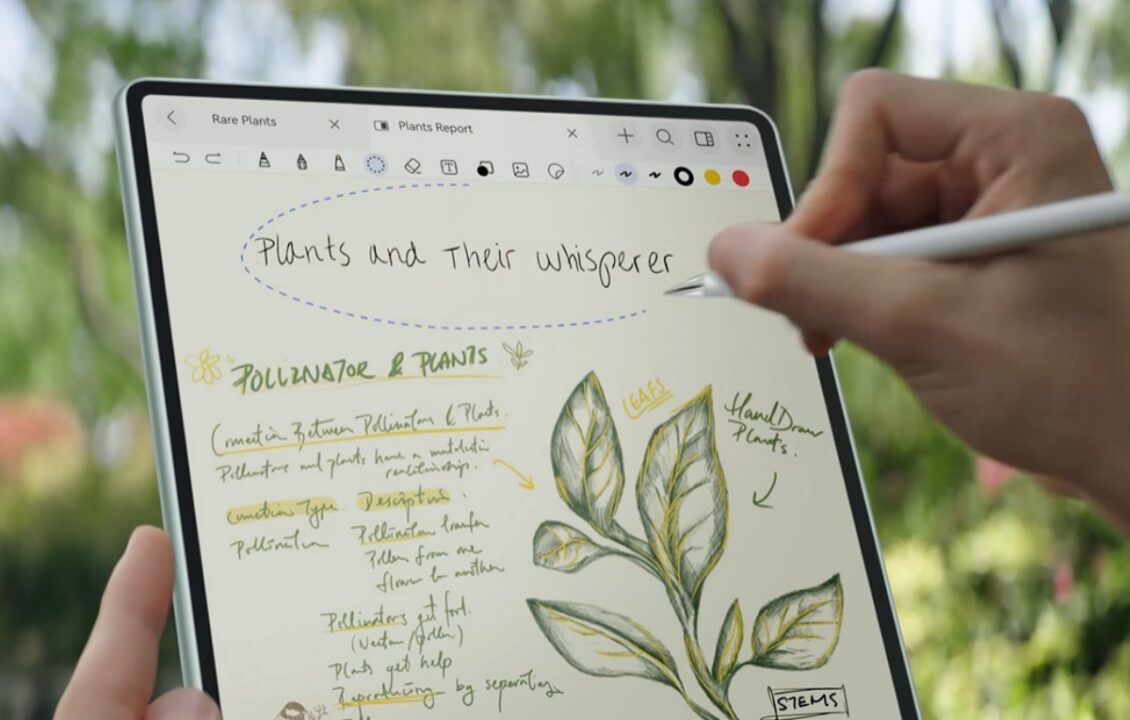 Rare Plants
Plants Report
Plants and Their whisperer
POLLINATOR & PLANTS
LEAFS
Hand Draw
Plants.
Connection Between Pollinators & Plants.
Pollinators and plants have a mutualistic
relationship.
Connection Type
Description
Pollination
Pollination transfer
Pollen from one
flower to another
Pollinators get food.
(Nectar/pollen)
Plants get help
Reproducing by seperating
STEMS